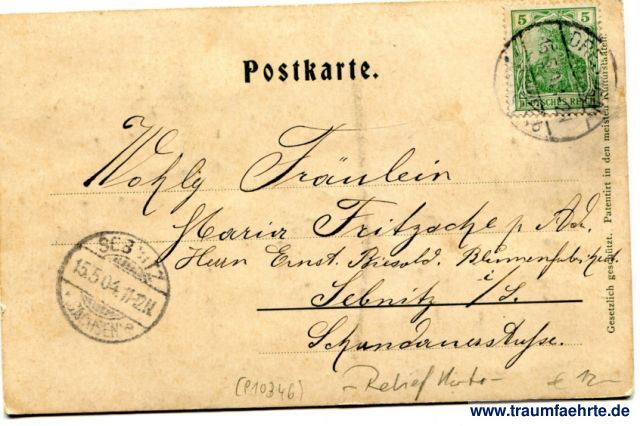 Postkarte.
5
DEUTSCHES REICH
Wohlg Fräulein
Maria Fritzsche p. Ad.
Herrn Ernst Biesold, Blumenfabrikant.
Sebnitz i/S.
Schandauerstraße.
SEBNITZ
15.5.04.11-12.N.
SACHSEN
Gesetzlich geschützt. Patentirt in den meisten Kulturstaaten.
(P10346)
-Relief Karte-
€ 12,-
www.traumfaehrte.de